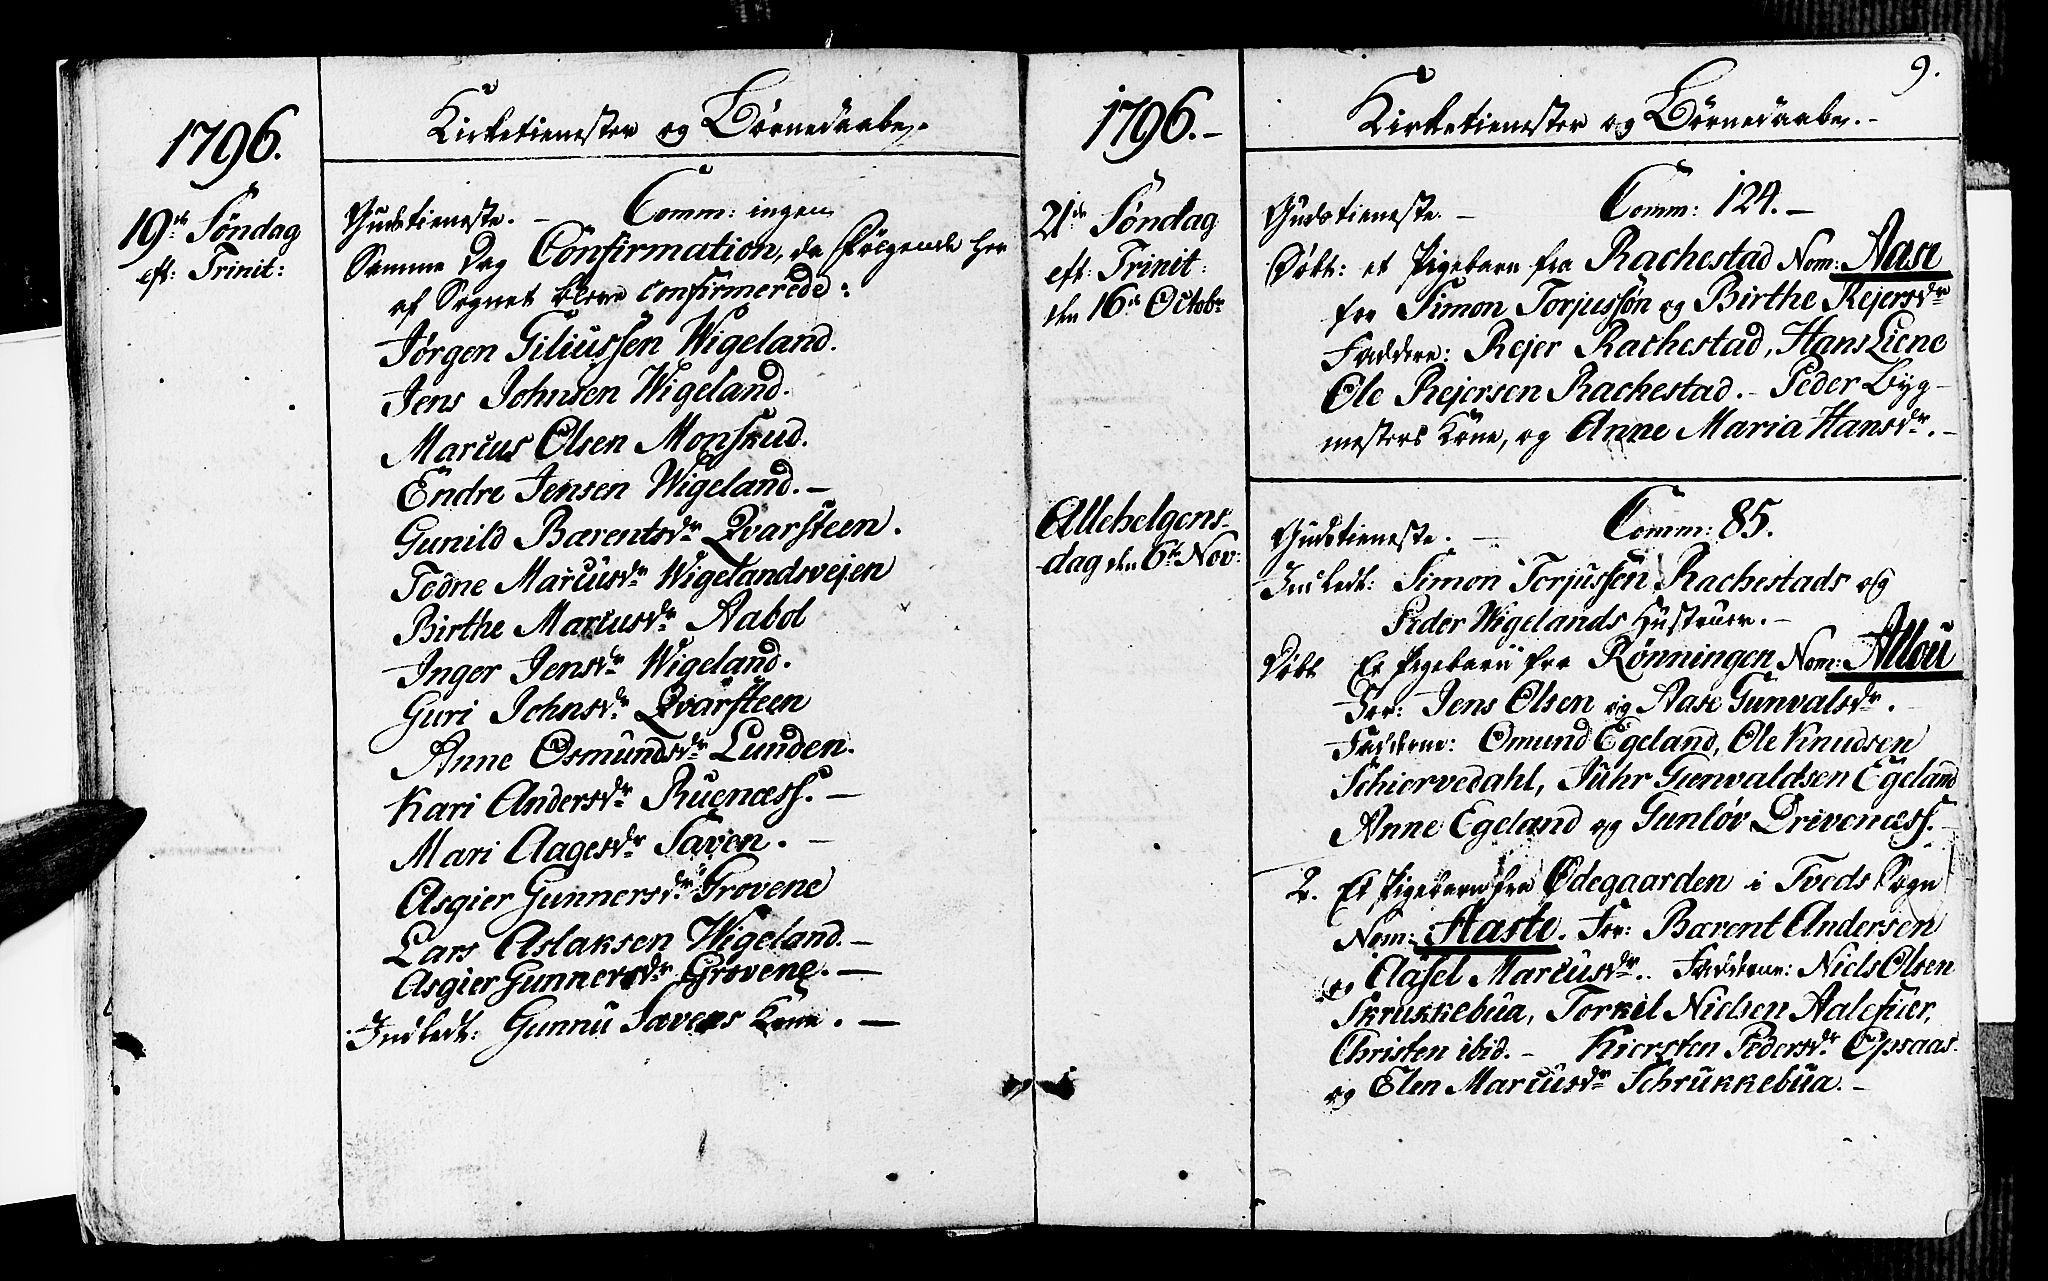 1796.
Kirketienester og Börnedaabe.
19de Søndag
eft: Trinit:
Gudstieneste. – Comm: ingen
Samme Dag Confirmation, da følgende her
af Sognet bleve confirmerede:
Jørgen Giliussen Wigeland.
Jens Johnsen Wigeland.
Marcus Olsen Monskud.
Endre Jensen Wigeland. –
Gunild Barentsdr Qvarsteen.
Todne Marcusdr Wigelandsvejen
Birthe Marcusdr Aabol
Inger Jensdr Wigeland.
Guri Johnsdr Qvarsteen
Anne Osmundsdr Lunden.
Kari Andersdr Ruenæss. –
Mari Aagesdr Saven. –
Asgier Gunnersdr Grovene
Lars Aslaksen Wigeland. –
Asgier Gunnersdr Grovene. –
Indledt: Gunnu Sævens Kone. –
9.
1796. –
Kirketienester og Börnedaabe. –
21de Søndag
eft: Trinit:
den 16de Octobr
Gudstieneste. – Comm: 124. –
Døbt: et Pigebarn fra Rachestad Nom: Aase
For Simon Torjussøn og Birthe Rejersdr
Faddere: Rejer Rachestad, Hans Liene
Ole Rejersen Rachestad. – Peder Byg-
mesters Kone, og Anne Maria Hansdr. –
Allehelgens-
dag den 6te Nov:
Gudstieneste. – Comm: 85.
Indledt: Simon Torjussen Rachestads og
Peder Wigelands Hustruer. –
Døbt Et Pigebarn fra Rønningen Nom: Allou
For: Jens Olsen og Aase Gunvalsdr.
Fadderne: Omund Egeland, Ole Knudsen
Schiervedahl, Juhr Gunvaldsen Egeland
Anne Egeland og Gunløv Drivenæss. –
2. Et Pigebarn fra Ødegaarden i Tveds Sogn
Nom: Aaste. For: Barent Andersen
og Aasel Marcusdr. Fadderne: Niels Olsen
Skrukkebua, Torkel Nielsen Aalefiær,
Christen ibid. – Kiersten Pedersdr Opsaas
og Elen Marcusdr Schrukkebua. –